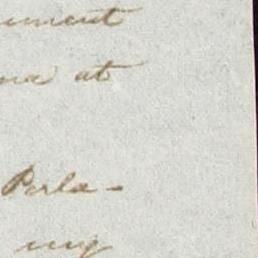 ument
na at
Perla-
my